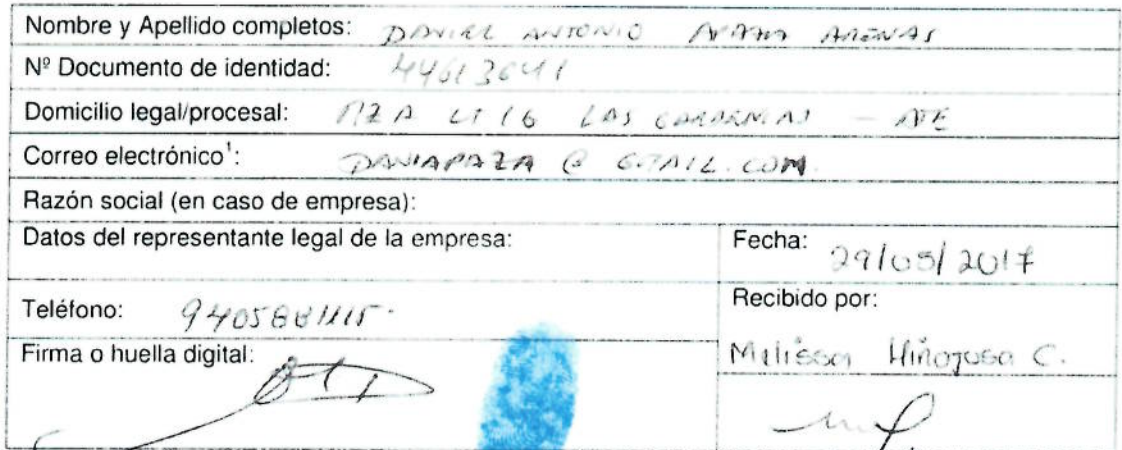 Nombre y Apellido completos: DANIEL ANTONIO APAZA ARENAS
Nº Documento de identidad: 44613641
Domicilio legal/procesal: MZ A LT 16 LAS GARDENIAS - ATE
Correo electrónico¹: DANIAPAZA @ GMAIL.COM.
Razón social (en caso de empresa):
Datos del representante legal de la empresa:
Fecha: 29/05/2017
Teléfono:
Recibido por:
Melissa Hinojosa C.
Firma o huella digital: